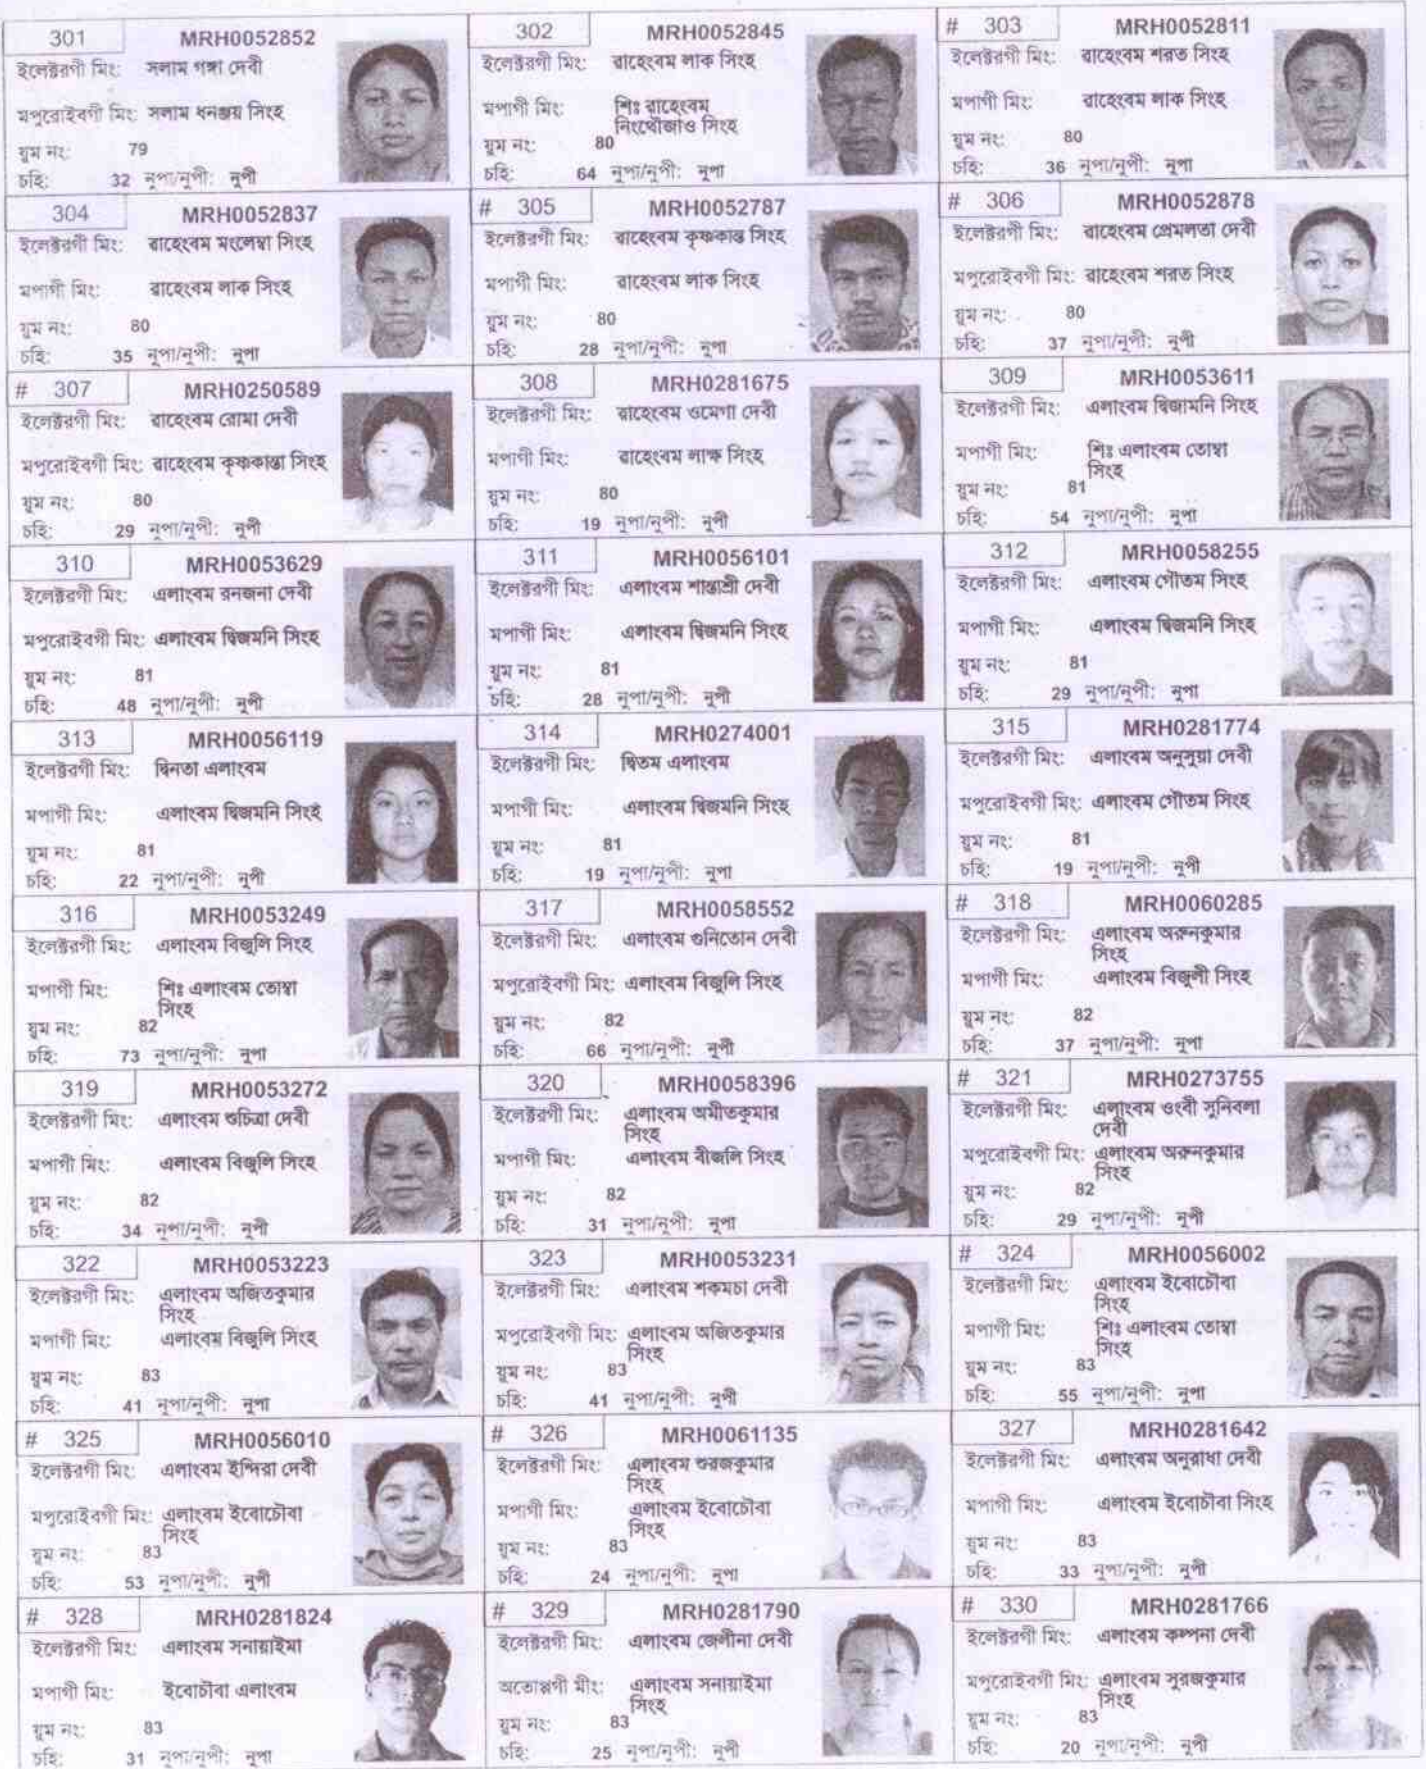 301 MRH0052852
ইলেক্টরগী মিং: সলাম গঙ্গা দেবী
মপুরোইবগী মিং: সলাম ধনঞ্জয় সিংহ
য়ুম নং: 79
চহি: 32 নুপা/নুপী: নুপী
302 MRH0052845
ইলেক্টরগী মিং: ৱাহেংবম লাক সিংহ
মপাগী মিং: শিঃ ৱাহেংবম
নিংথৌজাও সিংহ
য়ুম নং: 80
চহি: 64 নুপা/নুপী: নুপা
# 303 MRH0052811
ইলেক্টরগী মিং: ৱাহেংবম শরত সিংহ
মপাগী মিং: ৱাহেংবম লাক সিংহ
য়ুম নং: 80
চহি: 36 নুপা/নুপী: নুপা
304 MRH0052837
ইলেক্টরগী মিং: ৱাহেংবম মংলেম্বা সিংহ
মপাগী মিং: ৱাহেংবম লাক সিংহ
য়ুম নং: 80
চহি: 35 নুপা/নুপী: নুপা
# 305 MRH0052787
ইলেক্টরগী মিং: ৱাহেংবম কৃষ্ণকান্ত সিংহ
মপাগী মিং: ৱাহেংবম লাক সিংহ
য়ুম নং: 80
চহি: 28 নুপা/নুপী: নুপা
# 306 MRH0052878
ইলেক্টরগী মিং: ৱাহেংবম প্রেমলতা দেবী
মপুরোইবগী মিং: ৱাহেংবম শরত সিংহ
য়ুম নং: 80
চহি: 37 নুপা/নুপী: নুপী
# 307 MRH0250589
ইলেক্টরগী মিং: ৱাহেংবম রোমা দেবী
মপুরোইবগী মিং: ৱাহেংবম কৃষ্ণকান্তা সিংহ
য়ুম নং: 80
চহি: 29 নুপা/নুপী: নুপী
308 MRH0281675
ইলেক্টরগী মিং: ৱাহেংবম ওমেগা দেবী
মপাগী মিং: ৱাহেংবম লাক্ষ সিংহ
য়ুম নং: 80
চহি: 19 নুপা/নুপী: নুপী
309 MRH0053611
ইলেক্টরগী মিং: এলাংবম দ্বিজামনি সিংহ
মপাগী মিং: শিঃ এলাংবম তোম্বা
সিংহ
য়ুম নং: 81
চহি: 54 নুপা/নুপী: নুপা
310 MRH0053629
ইলেক্টরগী মিং: এলাংবম রনজনা দেবী
মপুরোইবগী মিং: এলাংবম দ্বিজমনি সিংহ
য়ুম নং: 81
চহি: 48 নুপা/নুপী: নুপী
311 MRH0056101
ইলেক্টরগী মিং: এলাংবম শান্তাশ্রী দেবী
মপাগী মিং: এলাংবম দ্বিজমনি সিংহ
য়ুম নং: 81
চহি: 28 নুপা/নুপী: নুপী
312 MRH0058255
ইলেক্টরগী মিং: এলাংবম গৌতম সিংহ
মপাগী মিং: এলাংবম দ্বিজমনি সিংহ
য়ুম নং: 81
চহি: 29 নুপা/নুপী: নুপা
313 MRH0056119
ইলেক্টরগী মিং: দ্বিনতা এলাংবম
মপাগী মিং: এলাংবম দ্বিজমনি সিংই
য়ুম নং: 81
চহি: 22 নুপা/নুপী: নুপী
314 MRH0274001
ইলেক্টরগী মিং: দ্বিতম এলাংবম
মপাগী মিং: এলাংবম দ্বিজমনি সিংহ
য়ুম নং: 81
চহি: 19 নুপা/নুপী: নুপা
315 MRH0281774
ইলেক্টরগী মিং: এলাংবম অনুসুয়া দেবী
মপুরোইবগী মিং: এলাংবম গৌতম সিংহ
য়ুম নং: 81
চহি: 19 নুপা/নুপী: নুপী
316 MRH0053249
ইলেক্টরগী মিং: এলাংবম বিজুলি সিংহ
মপাগী মিং: শিঃ এলাংবম তোম্বা
সিংহ
য়ুম নং: 82
চহি: 73 নুপা/নুপী: নুপা
317 MRH0058552
ইলেক্টরগী মিং: এলাংবম গুনিতোন দেবী
মপুরোইবগী মিং: এলাংবম বিজুলি সিংহ
য়ুম নং: 82
চহি: 66 নুপা/নুপী: নুপী
# 318 MRH0060285
ইলেক্টরগী মিং: এলাংবম অরুনকুমার
সিংহ
মপাগী মিং: এলাংবম বিজুলী সিংহ
য়ুম নং: 82
চহি: 37 নুপা/নুপী: নুপা
319 MRH0053272
ইলেক্টরগী মিং: এলাংবম শুচিত্রা দেবী
মপাগী মিং: এলাংবম বিজুলি সিংহ
য়ুম নং: 82
চহি: 34 নুপা/নুপী: নুপী
320 MRH0058396
ইলেক্টরগী মিং: এলাংবম অমীতকুমার
সিংহ
মপাগী মিং: এলাংবম বীজলি সিংহ
য়ুম নং: 82
চহি: 31 নুপা/নুপী: নুপা
# 321 MRH0273755
ইলেক্টরগী মিং: এলাংবম ওংবী সুনিবলা
দেবী
মপুরোইবগী মিং: এলাংবম অরুনকুমার
সিংহ
য়ুম নং: 82
চহি: 29 নুপা/নুপী: নুপী
322 MRH0053223
ইলেক্টরগী মিং: এলাংবম অজিতকুমার
সিংহ
মপাগী মিং: এলাংবম বিজুলি সিংহ
য়ুম নং: 83
চহি: 41 নুপা/নুপী: নুপা
323 MRH0053231
ইলেক্টরগী মিং: এলাংবম শকমচা দেবী
মপুরোইবগী মিং: এলাংবম অজিতকুমার
সিংহ
য়ুম নং: 83
চহি: 41 নুপা/নুপী: নুপী
# 324 MRH0056002
ইলেক্টরগী মিং: এলাংবম ইবোচৌবা
সিংহ
মপাগী মিং: শিঃ এলাংবম তোম্বা
সিংহ
য়ুম নং: 83
চহি: 55 নুপা/নুপী: নুপা
# 325 MRH0056010
ইলেক্টরগী মিং: এলাংবম ইন্দিরা দেবী
মপুরোইবগী মিং: এলাংবম ইবোচৌবা
সিংহ
য়ুম নং: 83
চহি: 53 নুপা/নুপী: নুপী
# 326 MRH0061135
ইলেক্টরগী মিং: এলাংবম শুরজকুমার
সিংহ
মপাগী মিং: এলাংবম ইবোচৌবা
সিংহ
য়ুম নং: 83
চহি: 24 নুপা/নুপী: নুপা
327 MRH0281642
ইলেক্টরগী মিং: এলাংবম অনুরাধা দেবী
মপাগী মিং: এলাংবম ইবোচৗবা সিংহ
য়ুম নং: 83
চহি: 33 নুপা/নুপী: নুপী
# 328 MRH0281824
ইলেক্টরগী মিং: এলাংবম সনায়াইমা
মপাগী মিং: ইবোচৗবা এলাংবম
য়ুম নং: 83
চহি: 31 নুপা/নুপী: নুপা
# 329 MRH0281790
ইলেক্টরগী মিং: এলাংবম জেলীনা দেবী
অতোপ্পগী মীং: এলাংবম সনায়াইমা
সিংহ
য়ুম নং: 83
চহি: 25 নুপা/নুপী: নুপী
# 330 MRH0281766
ইলেক্টরগী মিং: এলাংবম কল্পনা দেবী
মপুরোইবগী মিং: এলাংবম সুরজকুমার
সিংহ
য়ুম নং: 83
চহি: 20 নুপা/নুপী: নুপী